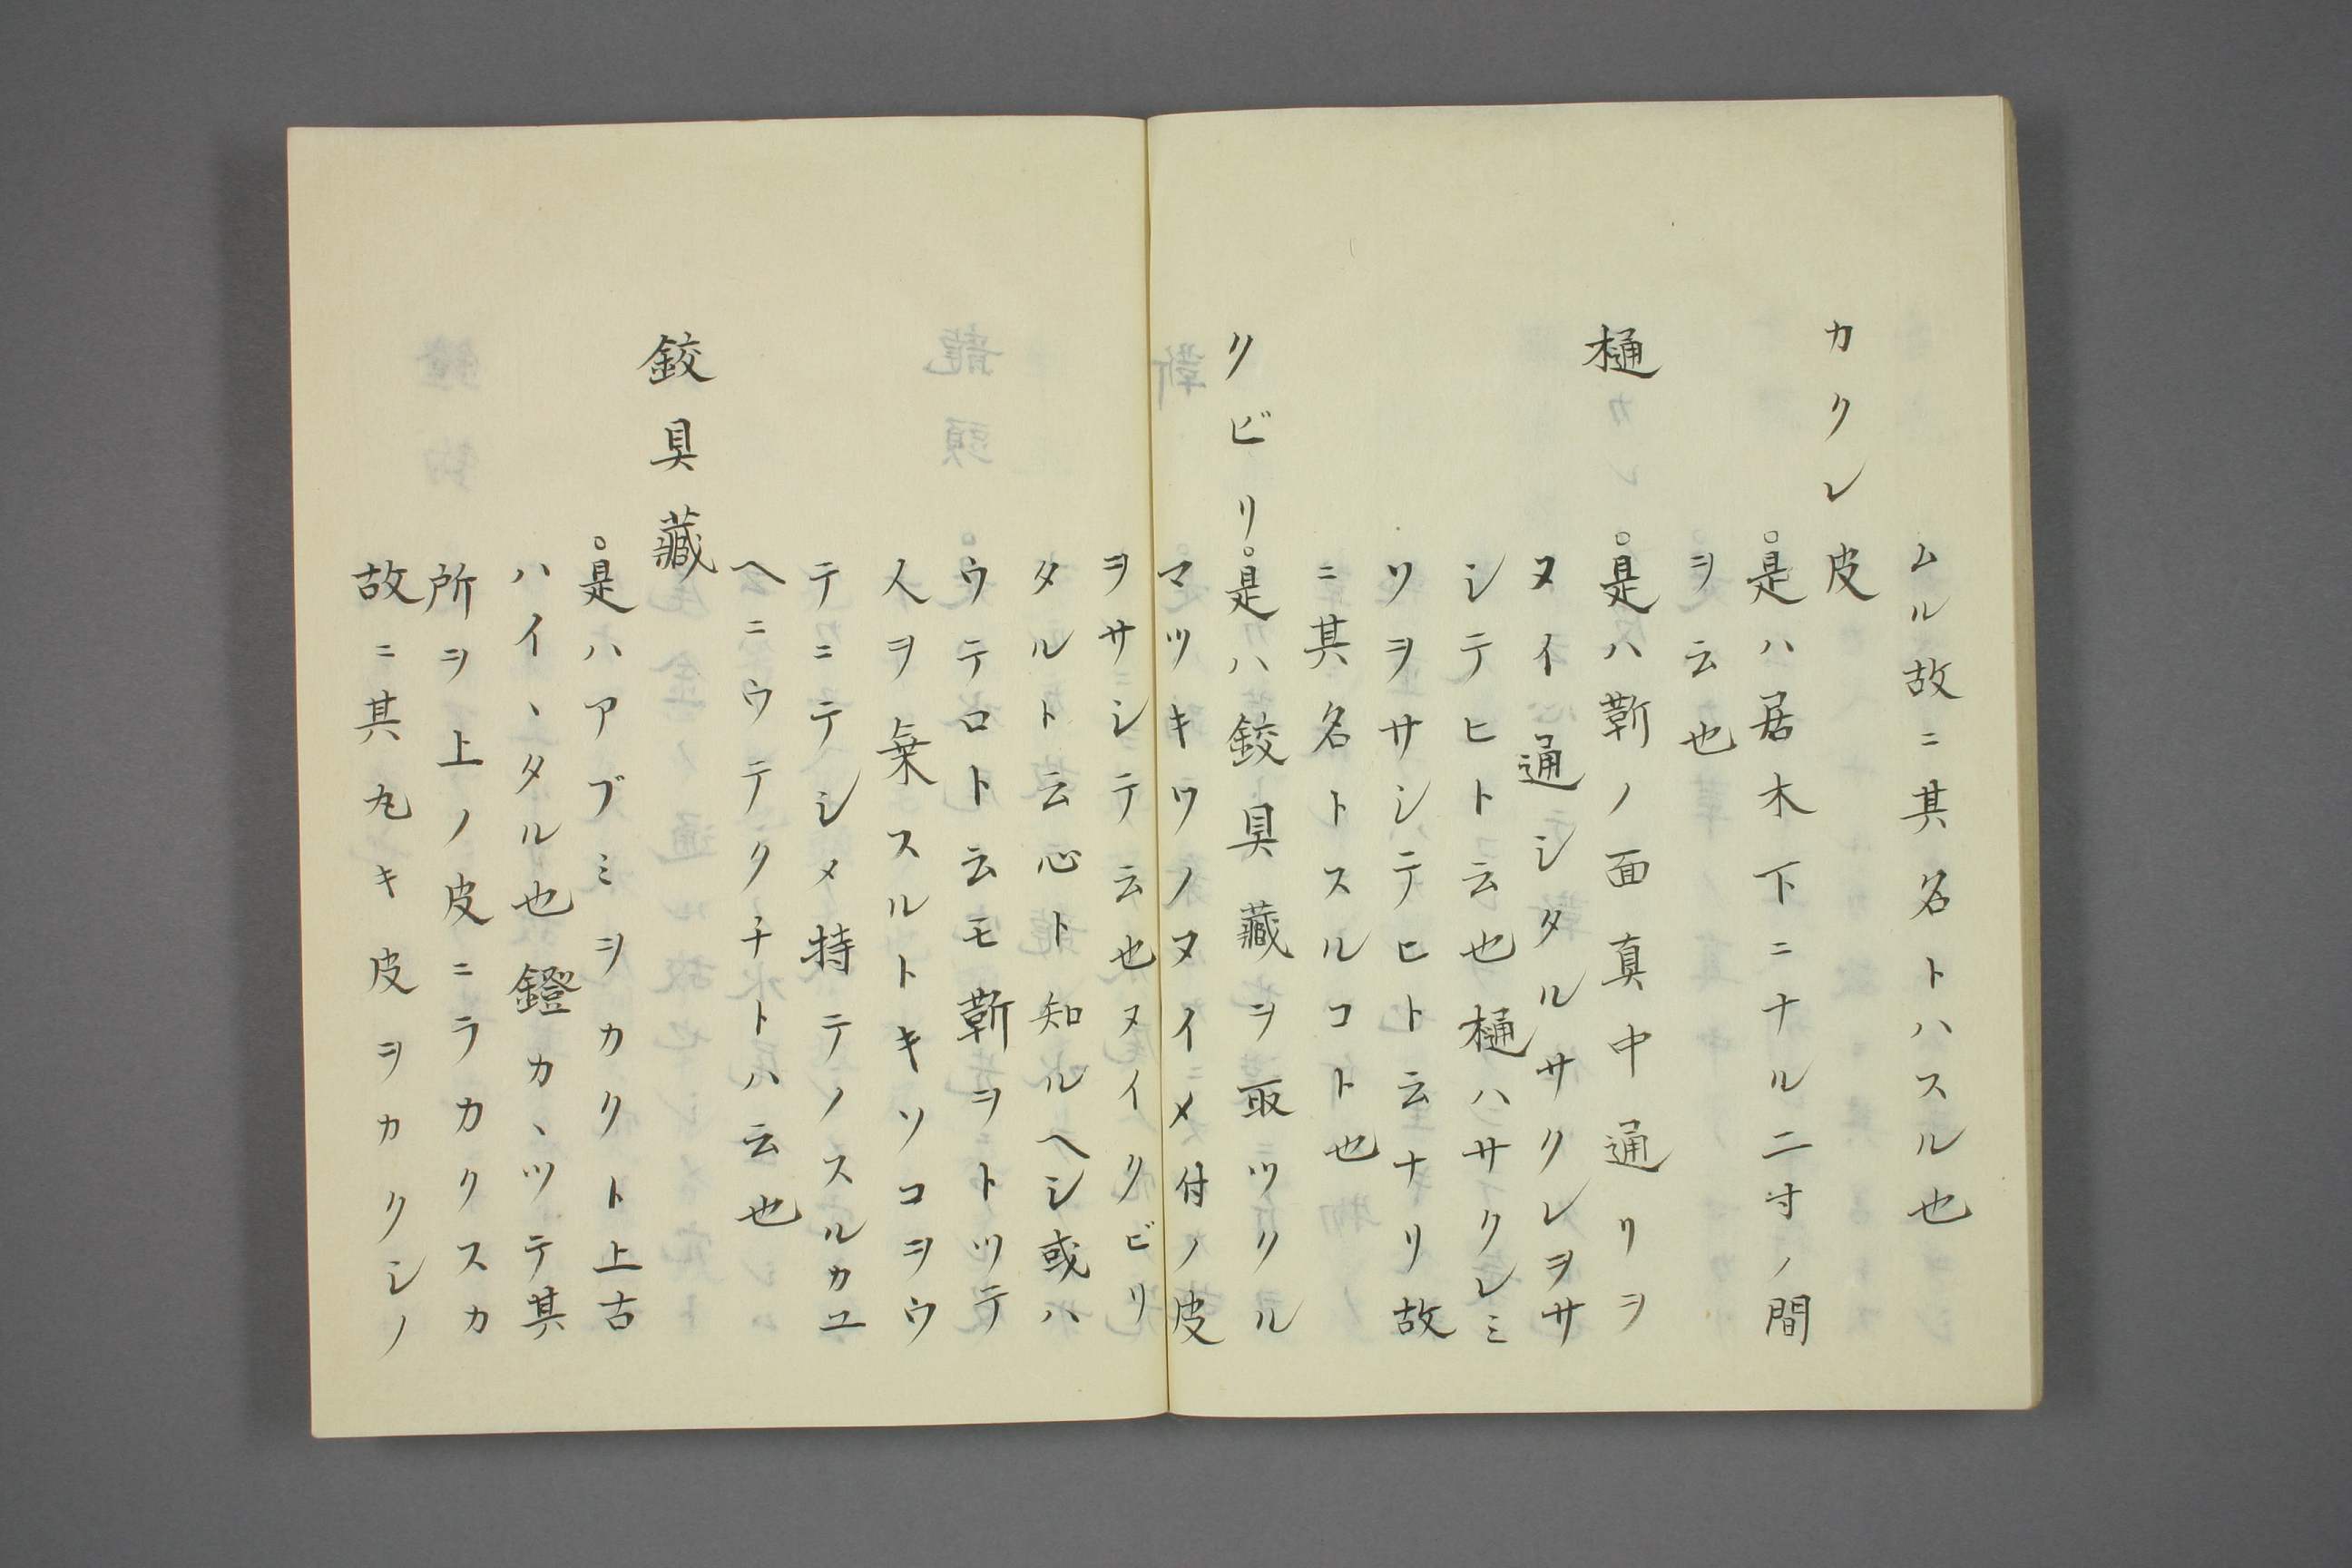 ムル故ニ其名トハスル也
カクレ皮
○是ハ居木下ニナル二寸ノ間
ヲ云也
樋　○是ハ靳ノ面真中通リヲ
ヌイ通シタルサクレヲサ
シテヒト云也樋ハサクレミ
ソヲサシテヒト云ナリ故
ニ其名トスルコト也
クビリ○是ハ鉸具藏ヲ取ツクル
マツキワノヌイメ付ノ皮
ヲサシテ云也ヌイクビリ
タルト云心ト知ルヘシ或ハ
ウテロト云モ靳ヲトツテ
人ヲ乗スルトキソコヲウ
テニテシメ特テノスルカユ
ヘニウテクチトハ云也
鉸具藏
○是ハアブミヲカクト上古
ハイヽタル也鐙カヽツテ其
所ヲ上ノ皮ニラカクスカ
故ニ其丸キ皮ヲカクシノ